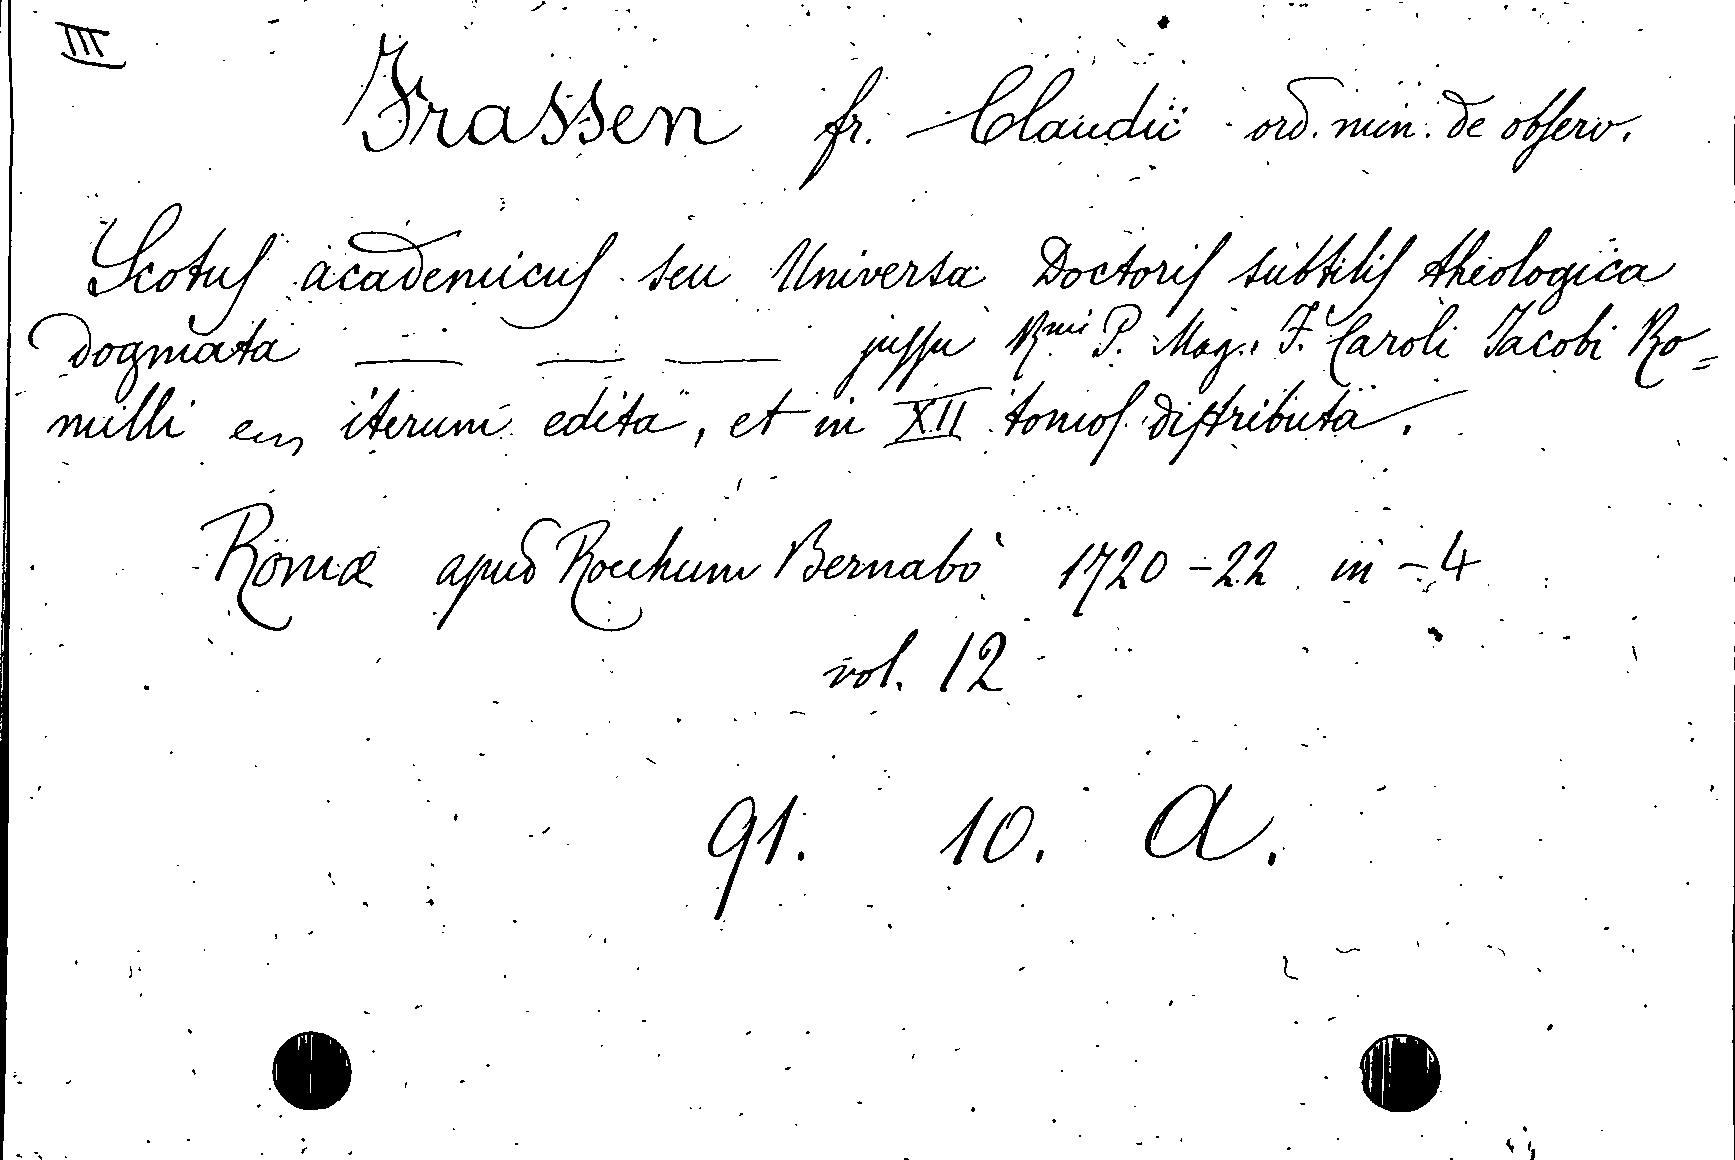 III
Frassen fr. Claudii ord. min. de observ.
Scotus academicus seu Universa Doctoris subtilis theologica
dogmata — — — jussu Rmi P. Mag. F. Caroli Jacobi Ro=
milli iterum edita, et in XII tomos distributa.
Romæ apud Rochum Bernabò 1720-22 in-4
vol. 12
91. 10. A.